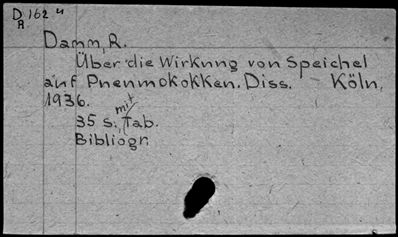 D 162 4
A
Damm, R.
Über die Wirkung von Speichel
auf Pneumokokken. Diss. Köln,
1936.
35 S. mit Tab.
Bibliogr.